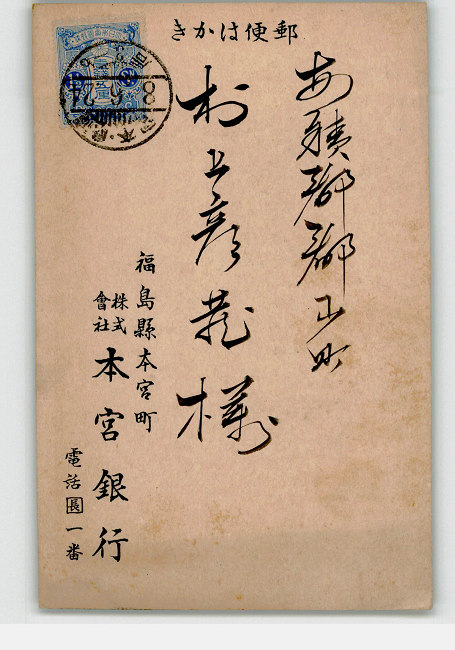 郵便はかき
安積郡郡山町
村上彦様
福島縣本宮町
株式會社本宮銀行
電話長一番